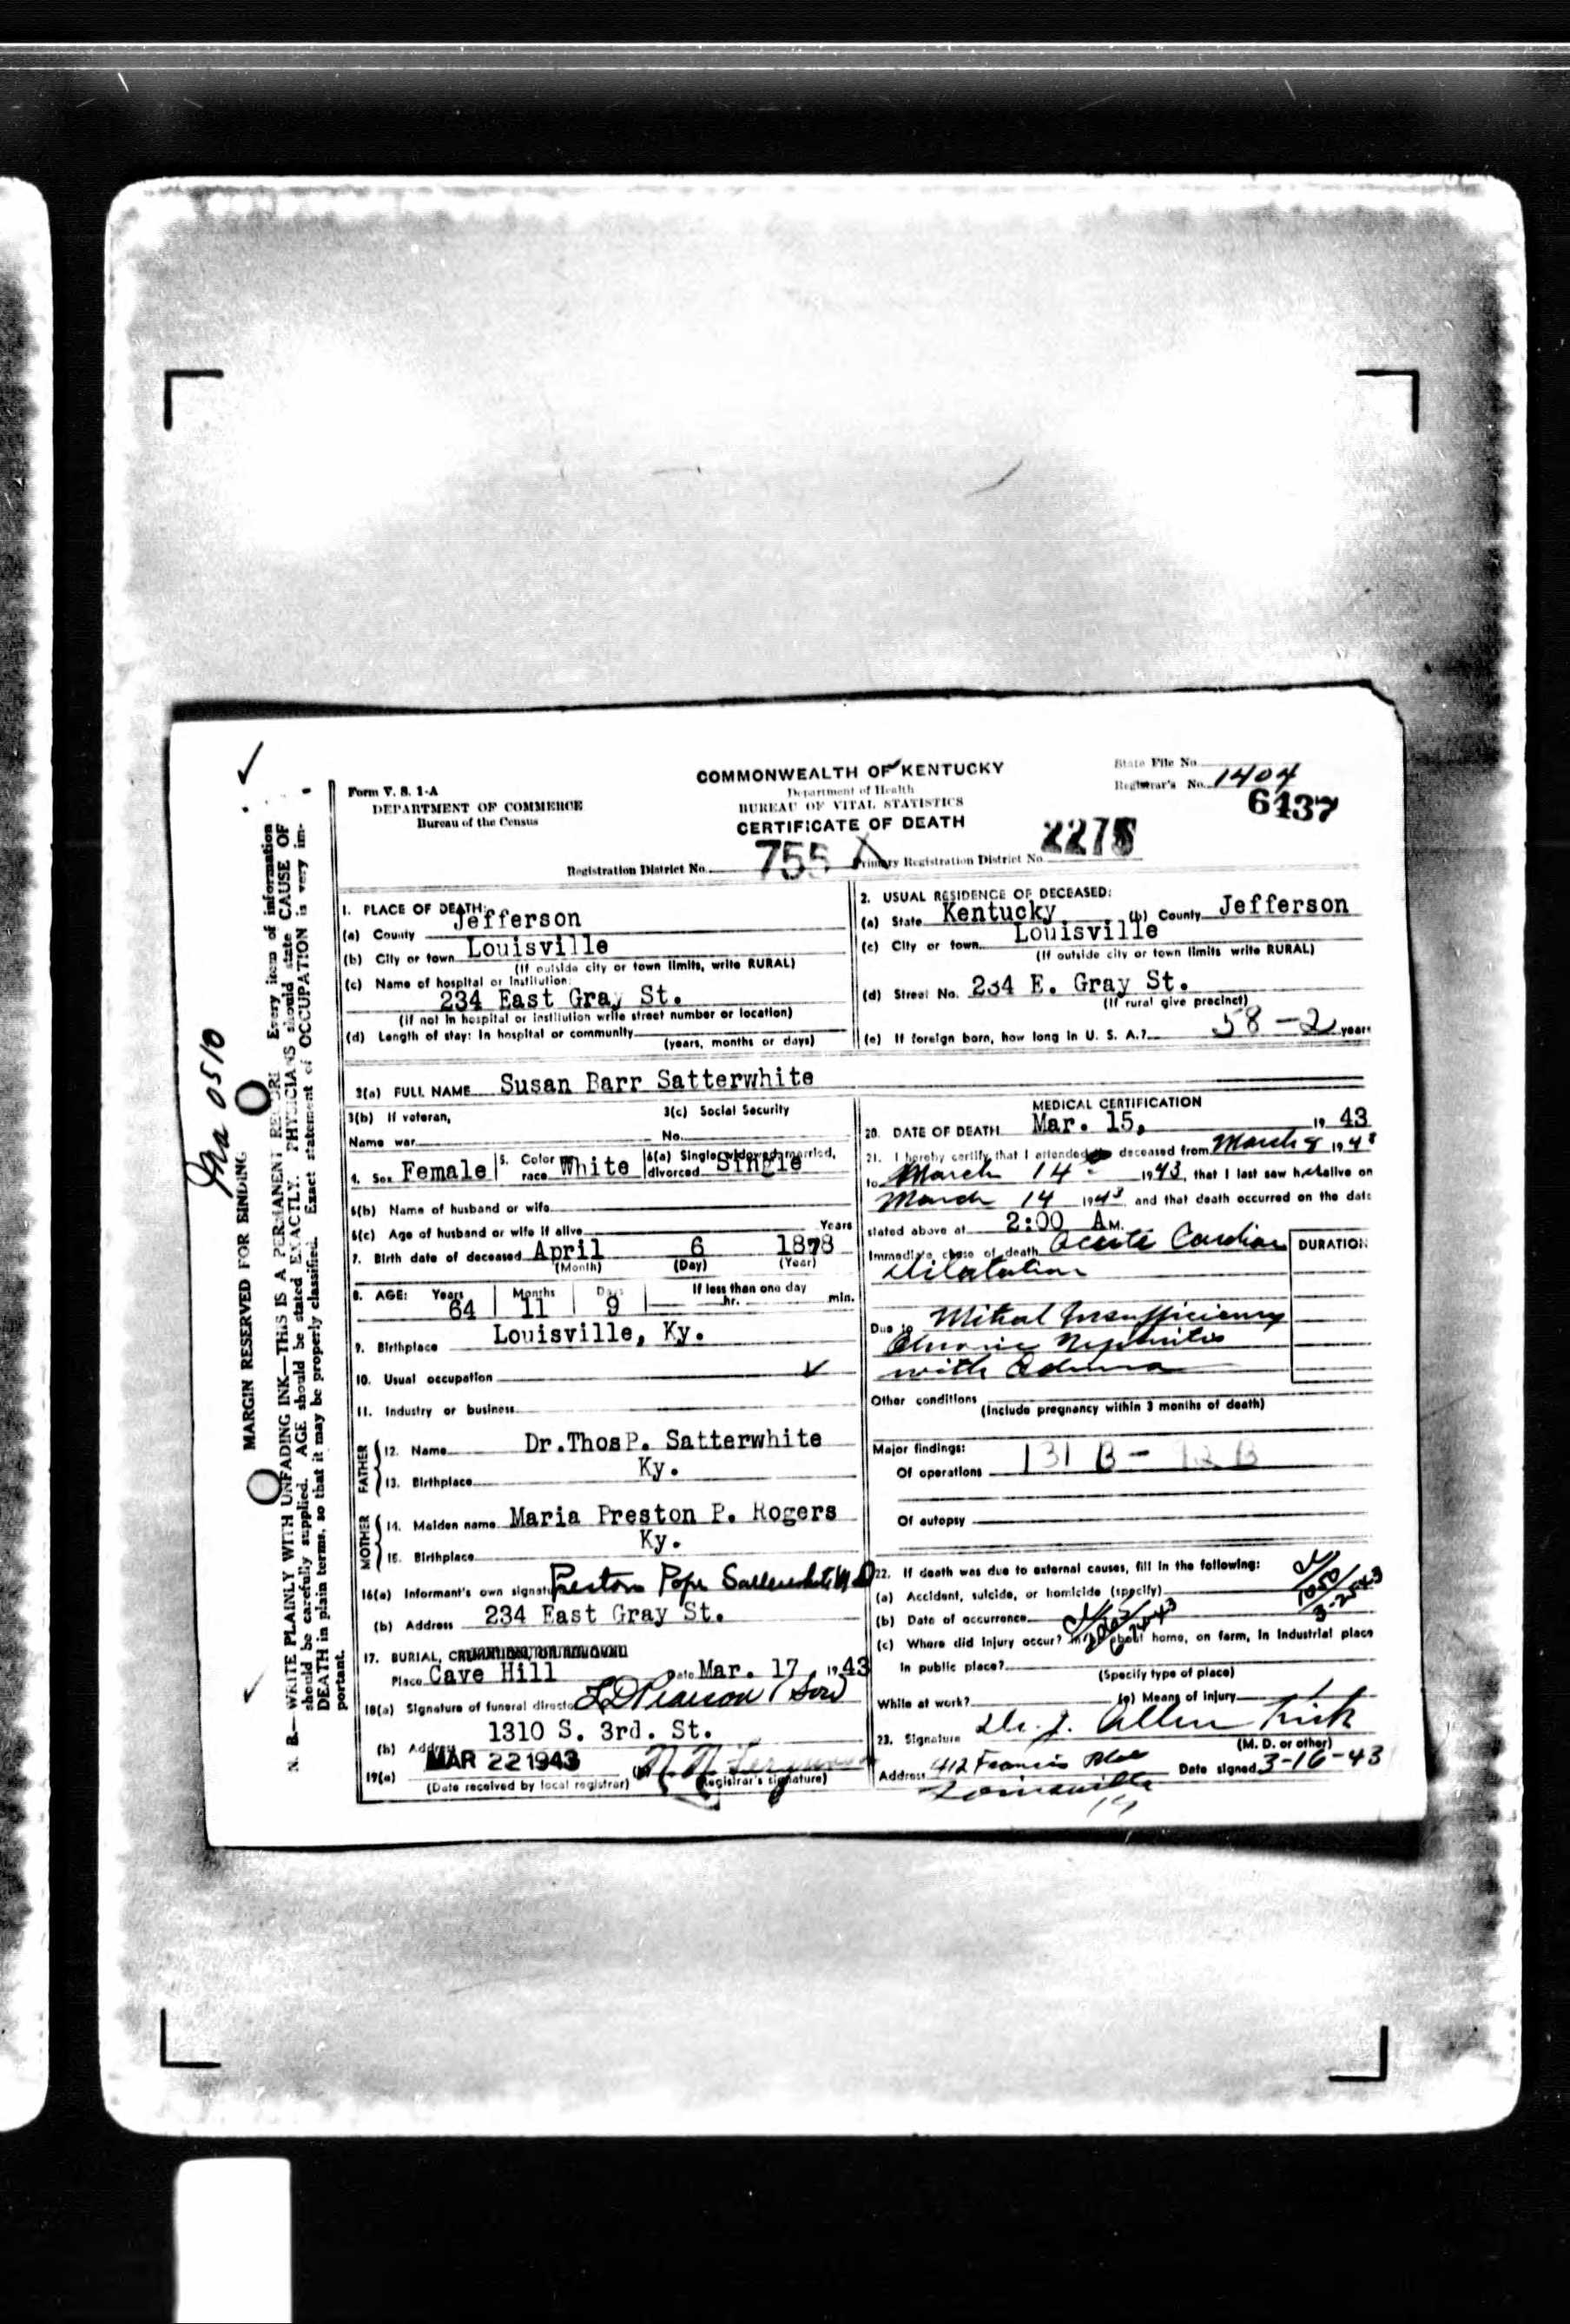 Form V. S. 1-A
DEPARTMENT OF COMMERCE
Bureau of the Census
COMMONWEALTH OF KENTUCKY
Department of Health
BUREAU OF VITAL STATISTICS
CERTIFICATE OF DEATH
State File No.
Registrar's No. 1404
6137
Registration District No. 755 Primary Registration District No. 2275
MARGIN RESERVED FOR BINDING
N. B.—WRITE PLAINLY WITH UNFADING INK—THIS IS A PERMANENT RECORD. Every item of information
should be carefully supplied. AGE should be stated EXACTLY. PHYSICIANS should state CAUSE OF
DEATH in plain terms, so that it may be properly classified. Exact statement of OCCUPATION is very im-
portant.
0510
1. PLACE OF DEATH:
(a) County Jefferson
(b) City or town Louisville
(If outside city or town limits, write RURAL)
(c) Name of hospital or institution:
234 East Gray St.
(If not in hospital or institution write street number or location)
(d) Length of stay: In hospital or community
(years, months or days)
2. USUAL RESIDENCE OF DECEASED:
(a) State Kentucky (b) County Jefferson
(c) City or town Louisville
(If outside city or town limits write RURAL)
(d) Street No. 234 E. Gray St.
(If rural give precinct)
(e) If foreign born, how long in U. S. A.? 58-2 years
3(a) FULL NAME Susan Barr Satterwhite
3(b) If veteran,
Name war
3(c) Social Security
No.
4. Sex Female 5. Color race White 6(a) Single, widowed, married, divorced Single
6(b) Name of husband or wife
6(c) Age of husband or wife if alive Years
7. Birth date of deceased April 6 1878
(Month) (Day) (Year)
8. AGE: Years Months Days If less than one day
64 11 9 hr. min.
9. Birthplace Louisville, Ky.
10. Usual occupation
11. Industry or business
FATHER
12. Name Dr.Thos P. Satterwhite
13. Birthplace Ky.
MOTHER
14. Maiden name Maria Preston P. Rogers
15. Birthplace Ky.
16(a) Informant's own signature Preston Pope Satterwhite M.D
(b) Address 234 East Gray St.
17. BURIAL,
Place Cave Hill Date Mar. 17, 1943
18(a) Signature of funeral director L D Pearson & Son
(b) Address 1310 S. 3rd. St.
19(a) MAR 22 1943
(Date received by local registrar) (Registrar's signature)
MEDICAL CERTIFICATION
20. DATE OF DEATH Mar. 15, 19 43
21. I hereby certify that I attended deceased from March 8 1943
to March 14 1943, that I last saw her alive on
March 14 1943 and that death occurred on the date
stated above at 2:00 A M.
Immediate cause of death Acute Cardiac
Dilatation
DURATION
Due to Mitral Insufficiency
Chronic Nephritis
with Edema
Other conditions
(Include pregnancy within 3 months of death)
Major findings:
Of operations 131 B-
Of autopsy
22. If death was due to external causes, fill in the following:
(a) Accident, suicide, or homicide (specify)
(b) Date of occurrence
(c) Where did injury occur? In or about home, on farm, in industrial place
In public place?
(Specify type of place)
While at work? (e) Means of injury
23. Signature Dr. J. Allen Kirk
(M. D. or other)
Address 412 Francis Bldg Date signed 3-16-43
Louisville